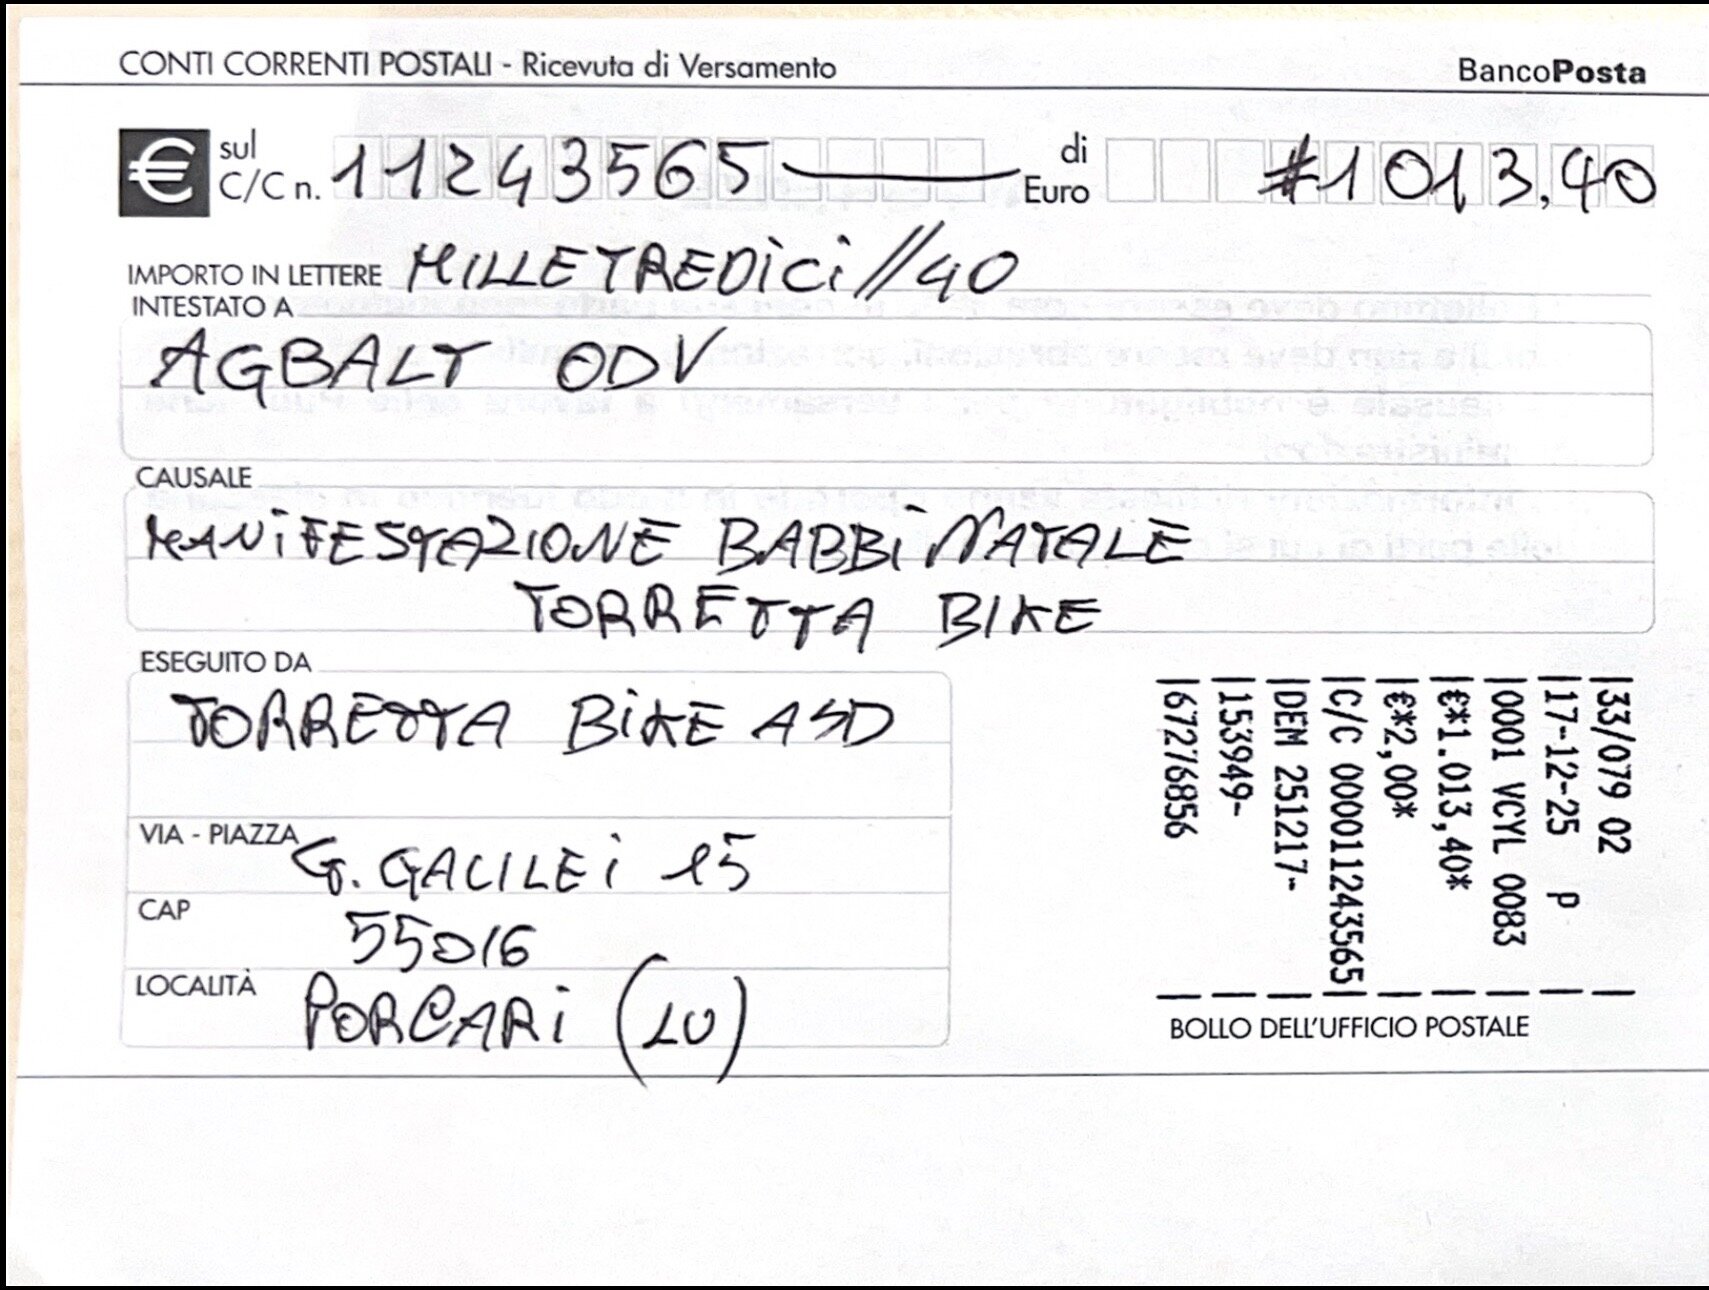 CONTI CORRENTI POSTALI - Ricevuta di Versamento BancoPosta
€ sul C/C n. 11243565 di Euro #1013,40
IMPORTO IN LETTERE MILLETREDICI//40
INTESTATO A
AGBALT ODV
CAUSALE
MANIFESTAZIONE BABBI NATALE
TORRETTA BIKE
ESEGUITO DA
TORRETTA BIKE ASD
VIA - PIAZZA G. GALILEI 15
CAP 55016
LOCALITÀ PORCARI (LU)
33/079 02
17-12-25 P
0001 VCYL 0083
€*1.013,40*
€*2,00*
C/C 000011243565
DEM 251217-
153949-
67276856
BOLLO DELL'UFFICIO POSTALE